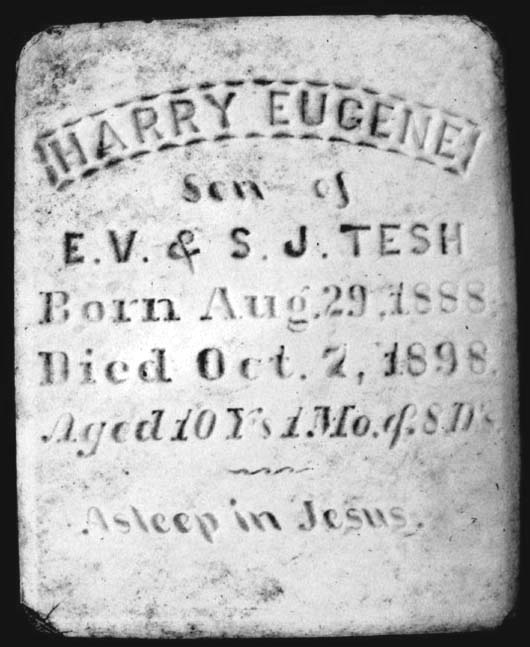 HARRY EUGENE
Son of
E.V. & S.J. TESH
Born Aug. 29, 1888.
Died Oct. 7, 1898.
Aged 10 Y's 1 Mo. & 8 D's
Asleep in Jesus.